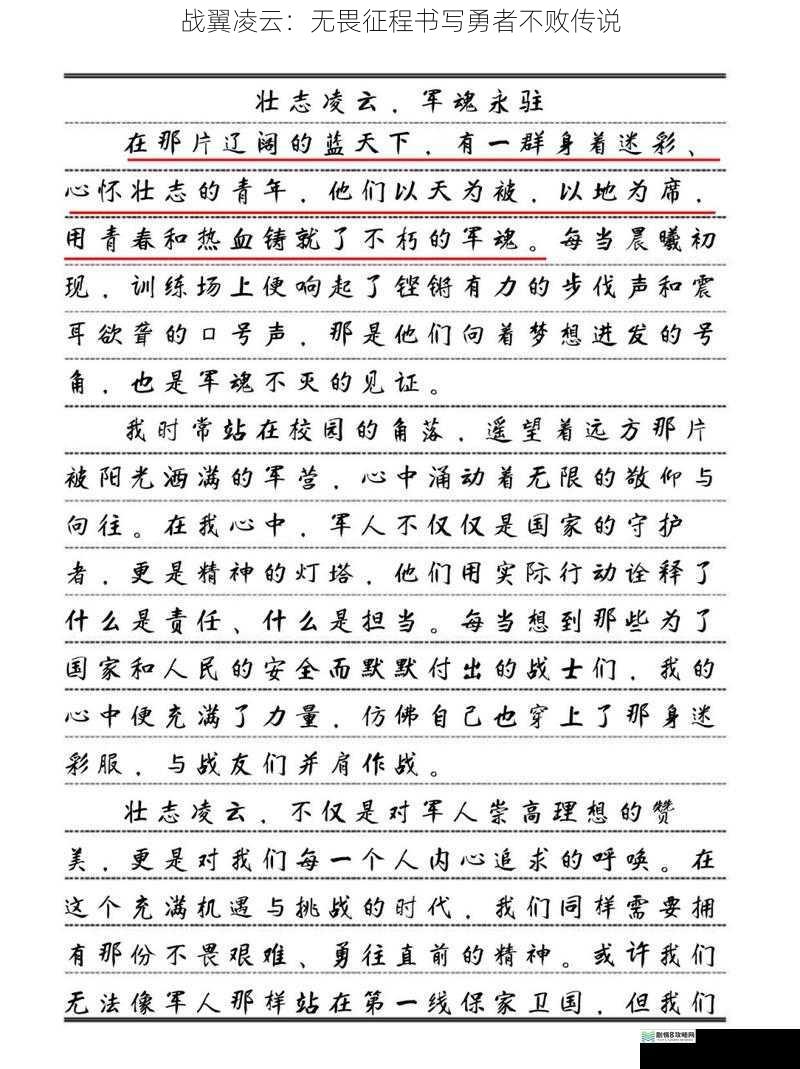 战翼凌云：无畏征程书写勇者不败传说
壮志凌云，军魂永驻
在那片辽阔的蓝天下，有一群身着迷彩、
心怀壮志的青年，他们以天为被，以地为席，
用青春和热血铸就了不朽的军魂。每当晨曦初
现，训练场上便响起了铿锵有力的步伐声和震
耳欲聋的口号声，那是他们向着梦想进发的号
角，也是军魂不灭的见证。
我时常站在校园的角落，遥望着远方那片
被阳光洒满的军营，心中涌动着无限的敬仰与
向往。在我心中，军人不仅仅是国家的守护
者，更是精神的灯塔，他们用实际行动诠释了
什么是责任、什么是担当。每当想到那些为了
国家和人民的安全而默默付出的战士们，我的
心中便充满了力量，仿佛自己也穿上了那身迷
彩服，与战友们并肩作战。
壮志凌云，不仅是对军人崇高理想的赞
美，更是对我们每一个人内心追求的呼唤。在
这个充满机遇与挑战的时代，我们同样需要拥
有那份不畏艰难、勇往直前的精神。或许我们
无法像军人那样站在第一线保家卫国，但我们
剧情8攻略网